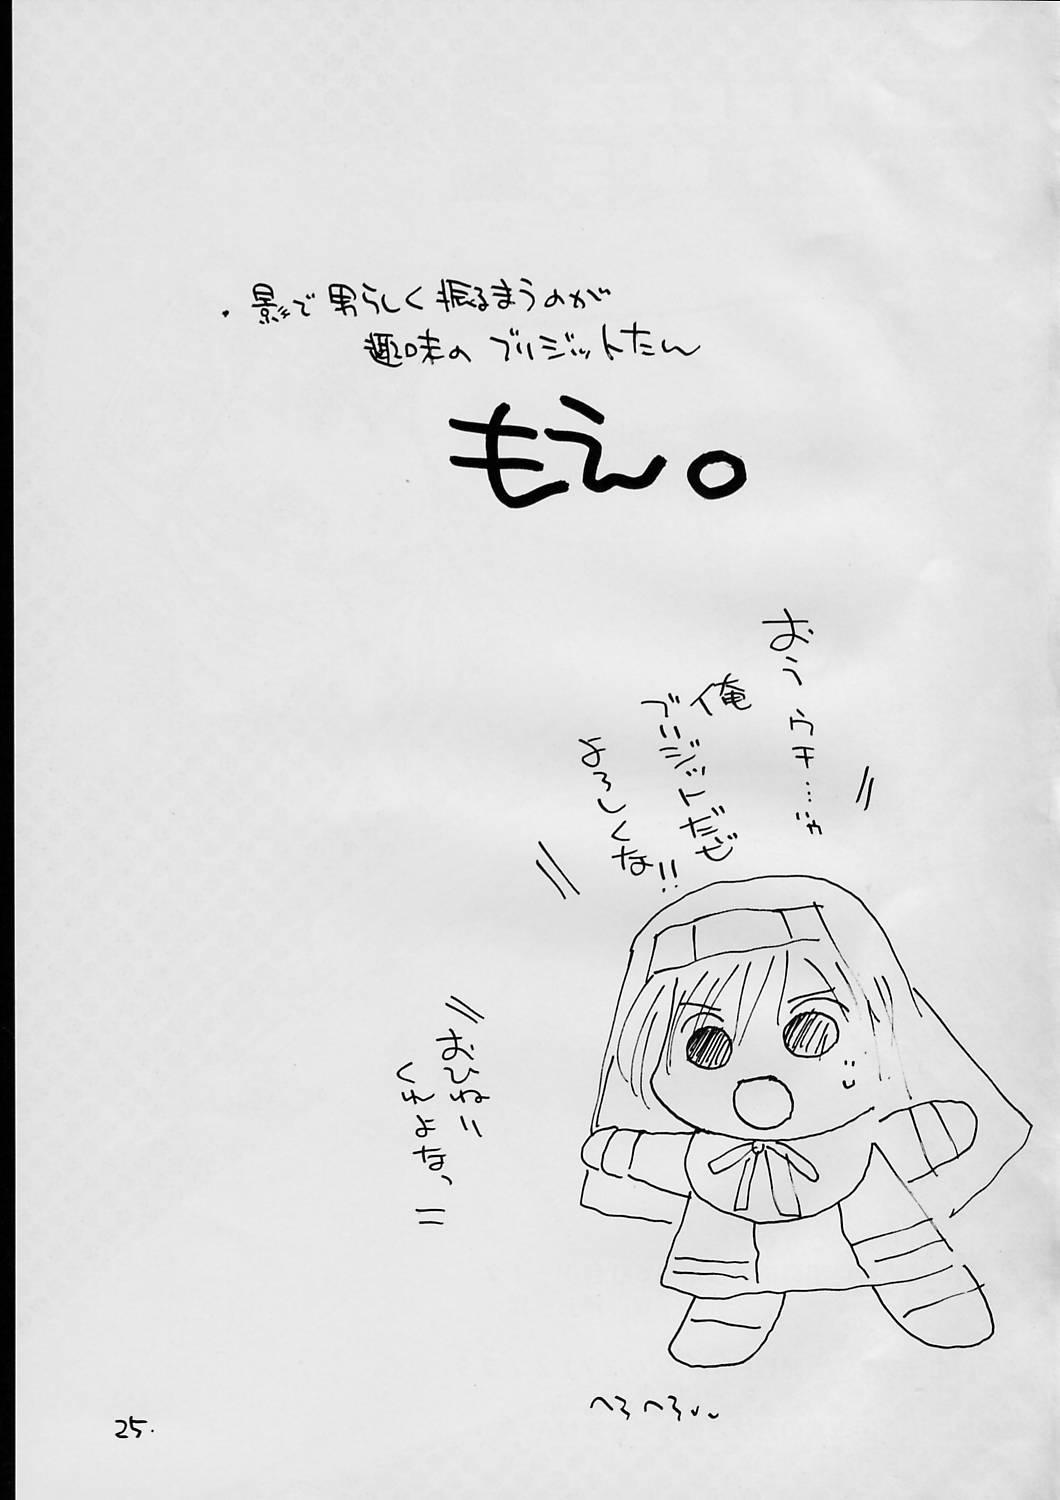 ・影で男らしく振るまうのが
趣味のブリジットたん
もえ。
おうウチ…じゃ
俺
ブリジットだぜ
よろしくな!!
おひねり
くれよな、
へろへろ
25.